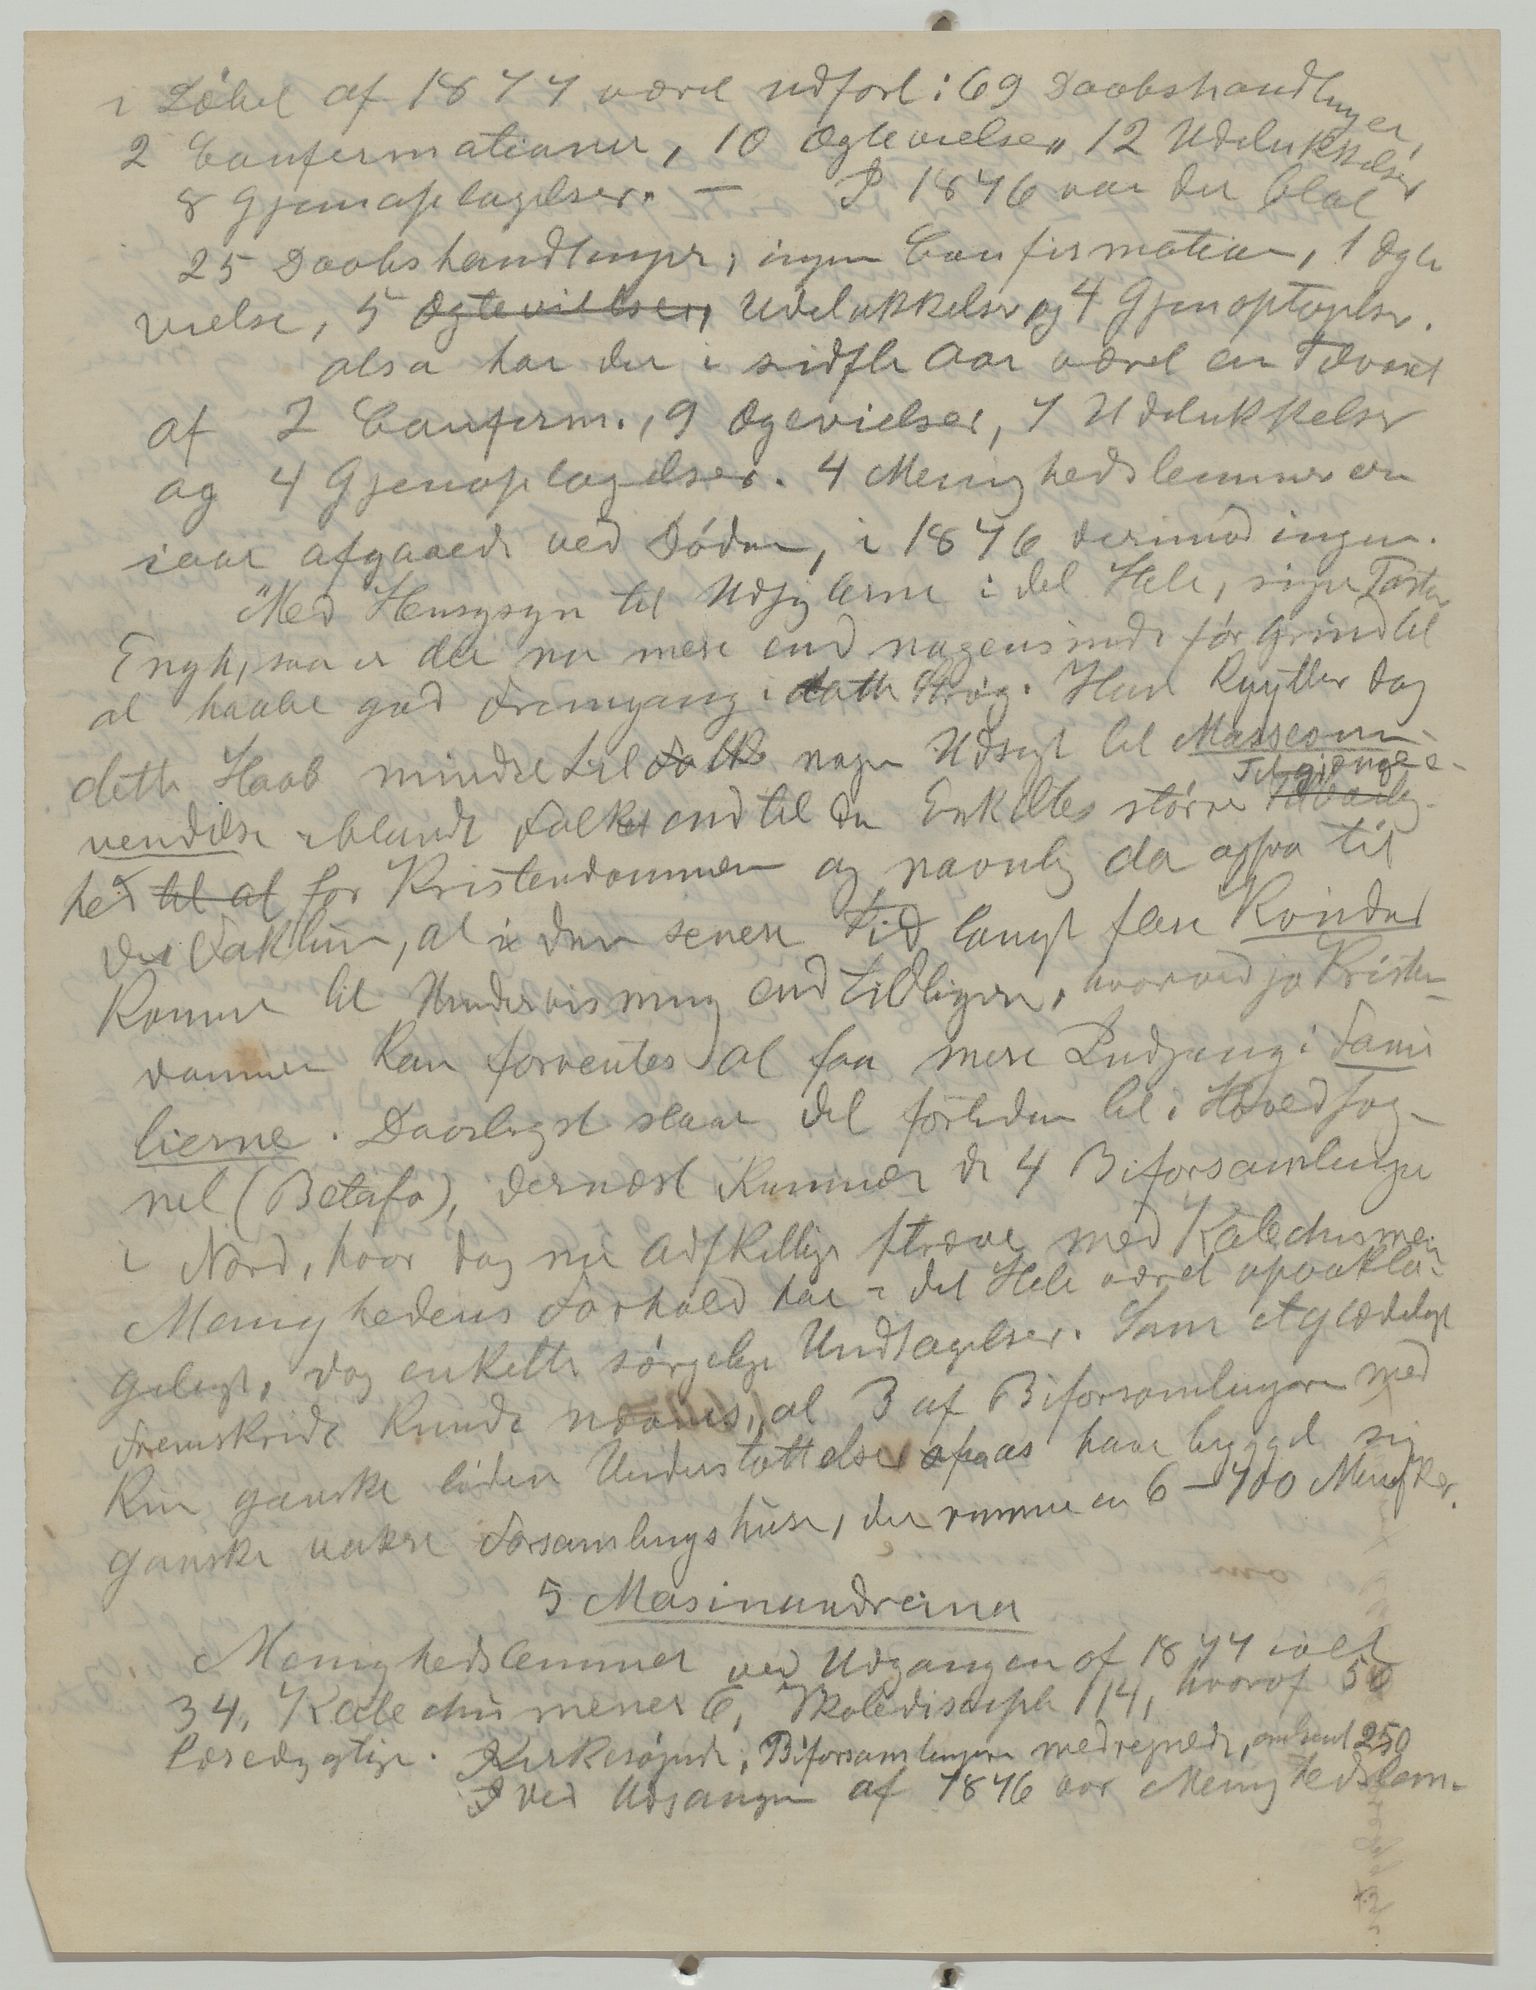 i Løbet af 1877 været udført: 69 Daabshandlinger,
2 Confirmationer, 10 Ægtevielser, 12 Udelukkelser
8 Gjenoptagelser. — I 1876 var der blot
25 Daabshandlinger, ingen Confirmation, 1 Ægte
vielse, 5 Ægtevielser, Udelukkelser og 4 Gjenoptagelser.
altsa har der i sidste Aar været en Tilvæxt
af 2 Confirm., 9 Ægevielser, 7 Udelukkelser
og 4 Gjenoptagelser. 4 Menighedslemmer ere
iaar afgaaede ved Døden, i 1876 derimod ingen.
"Med Hensysyn til Udsigterne i det Hele, siger Pastor
Engh, saa er der nu mere end nogensinde før Grund til
at haabe god Fremgang i dette Strøg. Han knytter dog
dette Haab mindre til nogen Udsigt til Masseom-
vendelse iblandt Folket end til den Enkeltes større Tilgjængelig-
hed til at for Kristendommen og navnlig da ogsaa til
det Faktum, at i den senere Tid langt flere Kvinder
komme til Undervisning end tidligere, hvorved jo Kristen-
dommen kan forventes at faa mere Indgang i Fami
lierne. Daarligst staar det fortiden til i Hovedsog-
net (Betafo), dernæst kommer de 4 Biforsamlinger
i Nord, hvor dog nu adskillige stræve med Katechismen
Menighedens Forhold har i det Hele været upaakla-
geligt, dog enkelte sørgelige Undtagelser. Som et glædeligt
Fremskridt kunde nævnes, at 3 af Biforsamlingerne med
kun ganske liden Understøttelse fra os have bygget sig
ganske vakre Forsamlingshuse, der rumme en 6–700 Mennesker.
5 Masinandreina
Menighedslemmer ved Udgangen af 1877 ialt
34, Katechumener 6, Skoledisciple 114, hvoraf 50
læsedygtige. Kirkesøgende, Biforsamlingerne medregnede, omtrent 250
Ved Udgangen af 1876 var Menighedslem-